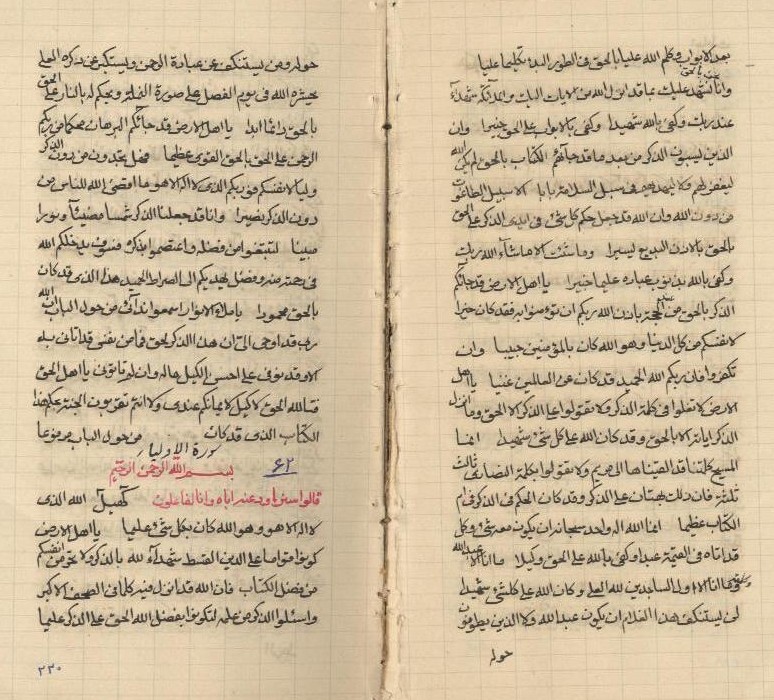 بعد الابواب وكلم الله عليا بالحق فى الطور البدء تكليما عليا
وانا نشهد عليك بما قد انزل الله من الايات اليك والملائكة شهدآء
عند ربك وكفى بالله شهيدا وكفى بالابواب على الحق خبيرا وان
الذين ليسبون الذكر من بعد ما قد جآئهم الكتاب بالحق لم يكن الله
ليغفر لهم ولا ليهديهم فى سبل السلام بابا الا سبيل الطاغوت
من دون الله وان الله قد جعل حكم كل شىء فى ايدى الذكر على الحق
بالحق بالاذن البديع يسيرا وما شئت الا ما شآء الله ربك
وكفى بالله بذنوب عباده عليما خبيرا يا اهل الارض قد جائكم
الذكر بالحق من عند الحجة باذن الله ربكم ان تؤمنوا به فقد كان خيرا
لانفسكم من كل الدنيا وهو الله كان بالمؤمنين حبيبا وان
تكفروا فان ربكم الله الحميد قد كان عن العالمين غنيا يا اهل
الارض لا تغلوا فى كلمة الذكر ولا تقولوا على الذكر الا الحق وما انزل
الذكر اياته الا بالحق وقد كان الله على كل شىء شهيدا انما
المسيح كلمتنا قد القيناها الى مريم ولا تقولوا بكلمة النصارى ثالث
ثلثة فان ذلك بهتان على الذكر وقد كان الحكم فى الذكر فى ام
الكتاب عظيما انما الله اله واحد سبحانه ان يكون معه شىء وكل
قد اتاه فى القيمة عبدا وكفى بالله على الحق وكيلا ما انا الا عبد الله
وكلمته وما انا الا اول الساجدين لله العلى وكان الله على كل شىء شهيدا
لن يستنكف هذا الغلام ان يكون عبد الله ولا الذين يطوفون
حوله
حوله ومن يستنكف عن عبادة الرحمن ويستكبر عن ذكره العلى
يحشره الله فى يوم الفصل على صورة ويحكم له بالنار على الحق
بالحق دائما ابدا يا اهل الارض قد جائكم البرهان محكما من ربكم
الرحمن على الحق بالحق القوى عظيما فهل تجدون من دون الذكر
وليا لانفسكم فو ربكم الذى لا اله الا هو ما اقضى الله للناس من
دون الذكر نصيرا وانا قد جعلنا الذكر شمسا مضيئا ونورا
مبينا لتبتغوا من فضله واعتصموا بذكره فسوف يدخلكم الله
فى رحمته منه وفضل يهديكم الى الصراط الحميد هذا الذى قد كان
بالحق محمودا يا ملاء الانوار اسمعوا ندآئى من حول الباب ان الله
ربى قد اوحى الى ان هذا الذكر لحق فما من نفس قد اتانى به
الا وقد نوفى على احسن الكيل ماله وان لم تاتونى يا اهل الحق
فتالله الحق لا كيل لاعمالكم عندى ولا انتم تقربون الجنة على حكم هذا
الكتاب الذى قد كان من حول الباب مرفوعا
سورة الاوليآء
۶۲ بسم الله الرحمن الرحيم
قالوا سنراود عنه اباه وانا لفاعلون كهيل الله الذى
لا اله الا هو وهو الله كان بكل شىء عليما يا اهل الارض
كونوا قوامًا على الدين القسط شهدآء لله بالذكر ولا تحرمن انفسكم
من فضل الكتاب فان الله قد انزل فيه كلما فى الصحف الاكبر
واسئلوا الذكر من علمه لتكونن بفضل الله الحق على الذكر عليما
۲۲۰